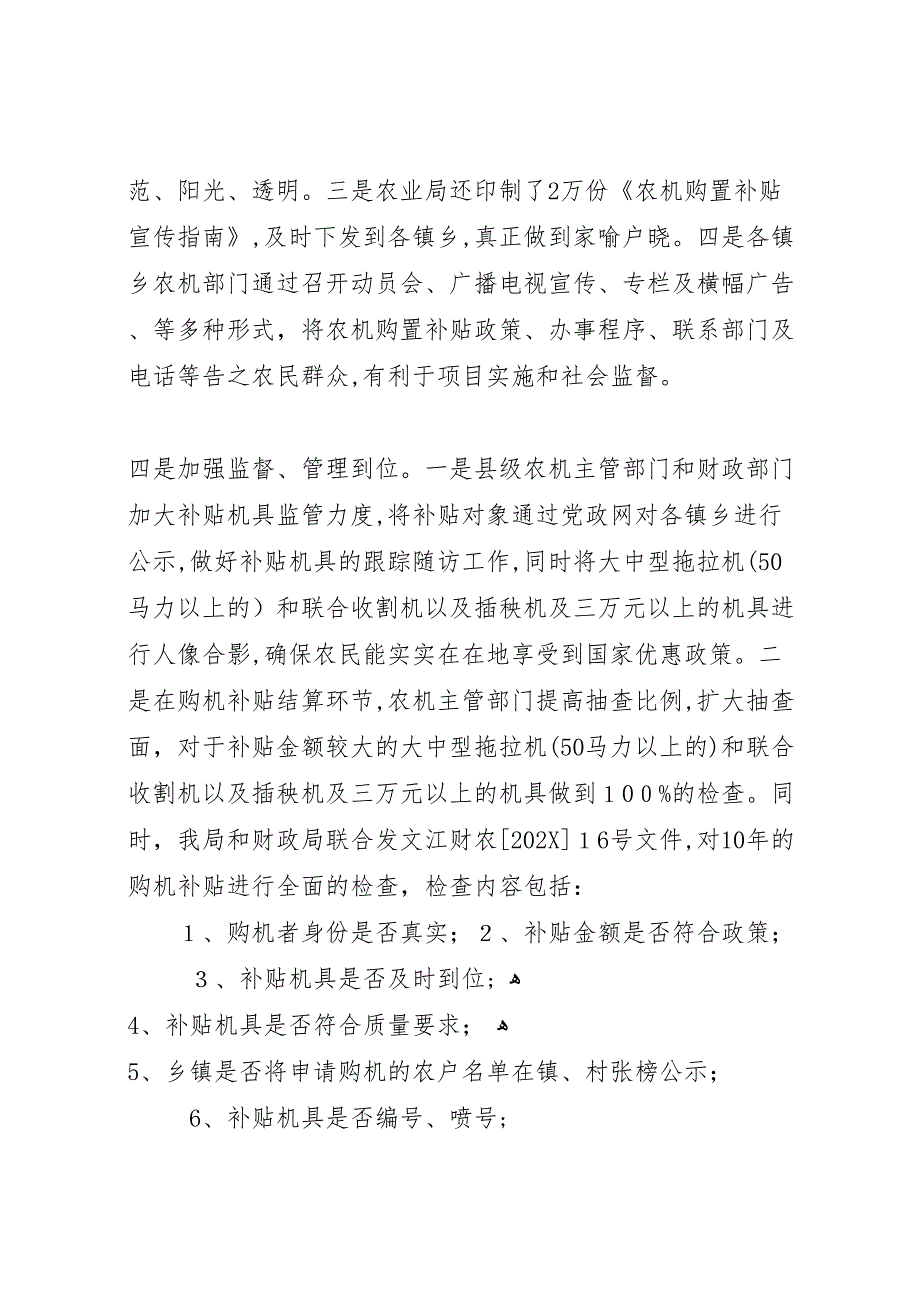 范、阳光、透明。三是农业局还印制了2万份《农机购置补贴
宣传指南》,及时下发到各镇乡,真正做到家喻户晓。四是各镇
乡农机部门通过召开动员会、广播电视宣传、专栏及横幅广告
、等多种形式，将农机购置补贴政策、办事程序、联系部门及
电话等告之农民群众,有利于项目实施和社会监督。
四是加强监督、管理到位。一是县级农机主管部门和财政部门
加大补贴机具监管力度,将补贴对象通过党政网对各镇乡进行
公示,做好补贴机具的跟踪随访工作,同时将大中型拖拉机(50
马力以上的）和联合收割机以及插秧机及三万元以上的机具进
行人像合影,确保农民能实实在在地享受到国家优惠政策。二
是在购机补贴结算环节,农机主管部门提高抽查比例,扩大抽查
面，对于补贴金额较大的大中型拖拉机(50马力以上的)和联合
收割机以及插秧机及三万元以上的机具做到１００%的检查。同
时，我局和财政局联合发文江财农[202X]１6号文件,对10年的
购机补贴进行全面的检查，检查内容包括：
１、购机者身份是否真实；２、补贴金额是否符合政策；
３、补贴机具是否及时到位;ﻫ
4、补贴机具是否符合质量要求；ﻫ
5、乡镇是否将申请购机的农户名单在镇、村张榜公示；
6、补贴机具是否编号、喷号;